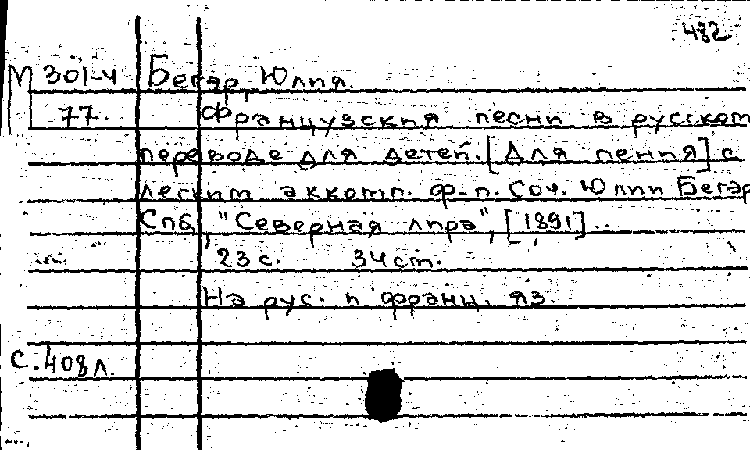 482
М 301-4 Бегар, Юлия.
77. Французския песни в русском
переводе для детей. [Для пения] с
легким аккомп. ф-п. Соч. Юлии Бегар
Спб, "Северная лира", [1891]..
23 с. 34 см.
На рус. и франц. яз.
С. 408 л.